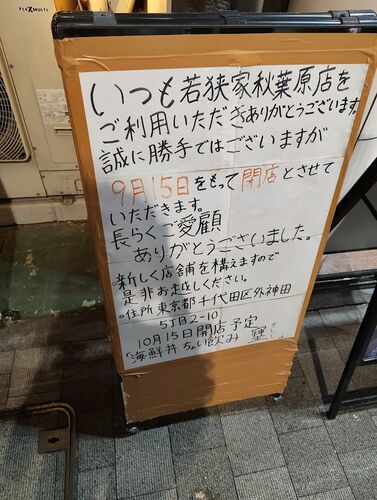 FLEXMULTI
いつも若狭家秋葉原店を
ご利用いただきありがとうございます。
誠に勝手ではございますが
9月15日をもって閉店とさせて
いただきます。
長らくご愛顧
ありがとうございました。
新しく店舗を構えますので
是非お越しください。
住所 東京都千代田区外神田
5丁目2-10
10月15日開店予定
「海鮮丼 ちょい飲み